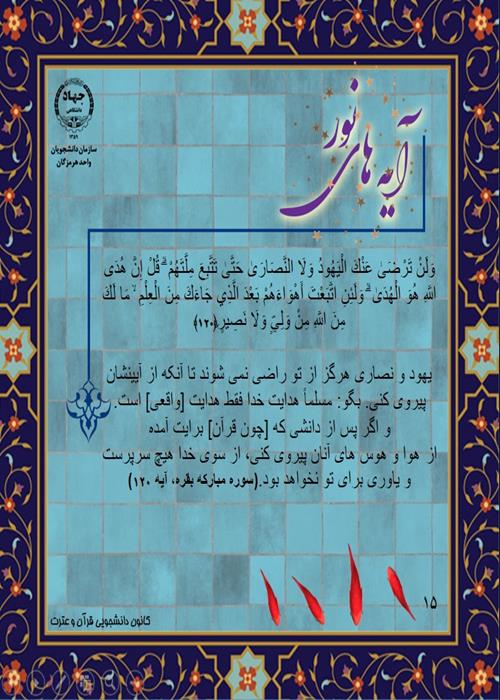 آیه های نور
جهاد
دانشگاهی
۱۳۵۹
سازمان دانشجویان
واحد هرمزگان
وَلَنْ تَرْضَىٰ عَنْكَ الْيَهُودُ وَلَا النَّصَارَىٰ حَتَّىٰ تَتَّبِعَ مِلَّتَهُمْ ۗ قُلْ إِنَّ هُدَى
اللَّهِ هُوَ الْهُدَىٰ ۗ وَلَئِنِ اتَّبَعْتَ أَهْوَاءَهُمْ بَعْدَ الَّذِي جَاءَكَ مِنَ الْعِلْمِ ۙ مَا لَكَ
مِنَ اللَّهِ مِنْ وَلِيٍّ وَلَا نَصِيرٍ﴿۱۲۰﴾
یهود و نصاری هرگز از تو راضی نمی شوند تا آنکه از آیینشان
پیروی کنی. بگو: مسلماً هدایت خدا فقط هدایت [واقعی] است.
و اگر پس از دانشی که [چون قرآن] برایت آمده
از هوا و هوس های آنان پیروی کنی، از سوی خدا هیچ سرپرست
و یاوری برای تو نخواهد بود.(سوره مبارکه بقره، آیه ۱۲۰)
۱۵
کانون دانشجویی قرآن و عترت